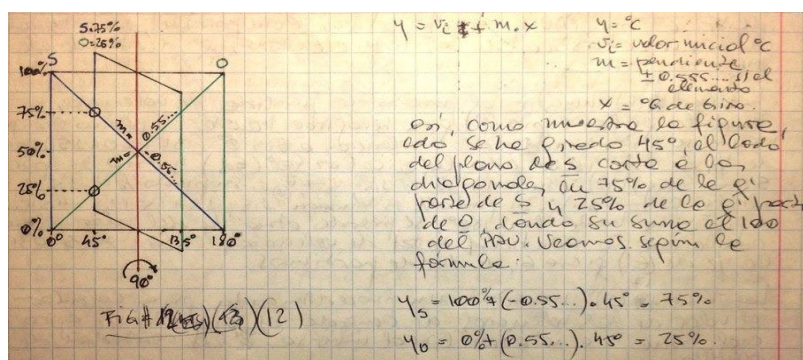 S=75%
0=25%
S
O
100%
75%
50%
25%
0%
m= -0.55...
m= 0.55...
0°
45°
135°
180°
90°
FIG# (12)
y = vi ± m.x
y = °C
vi = valor inicial °C
m = pendiente
± 0.555... s/ el
elemento
x = °G de Giro.
así, como muestra la figura,
do se ha girado 45°, el lado
del plano de S corta a las
diagonales en 75% de la
parte de S y 25% de la
de O, dando su suma el 100
del Veamos según la
fórmula:
yS = 100% + (-0.55...) . 45° = 75%
yO = 0% + (0.55...) . 45° = 25%